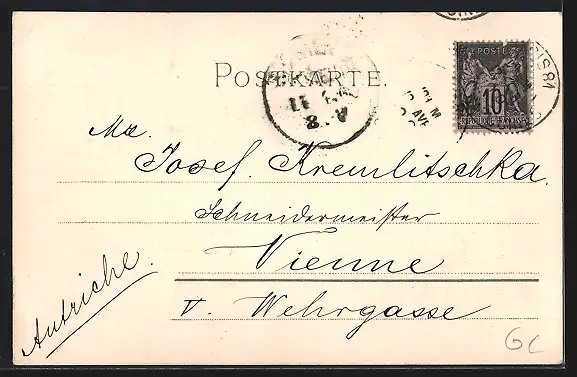 POSTKARTE.
POSTE
10
REPUBLIQUE FRANCAISE
Mr.
Josef Kremlitschka.
Schneidermeister
Vienne
V. Wehrgasse
Autriche.
GL